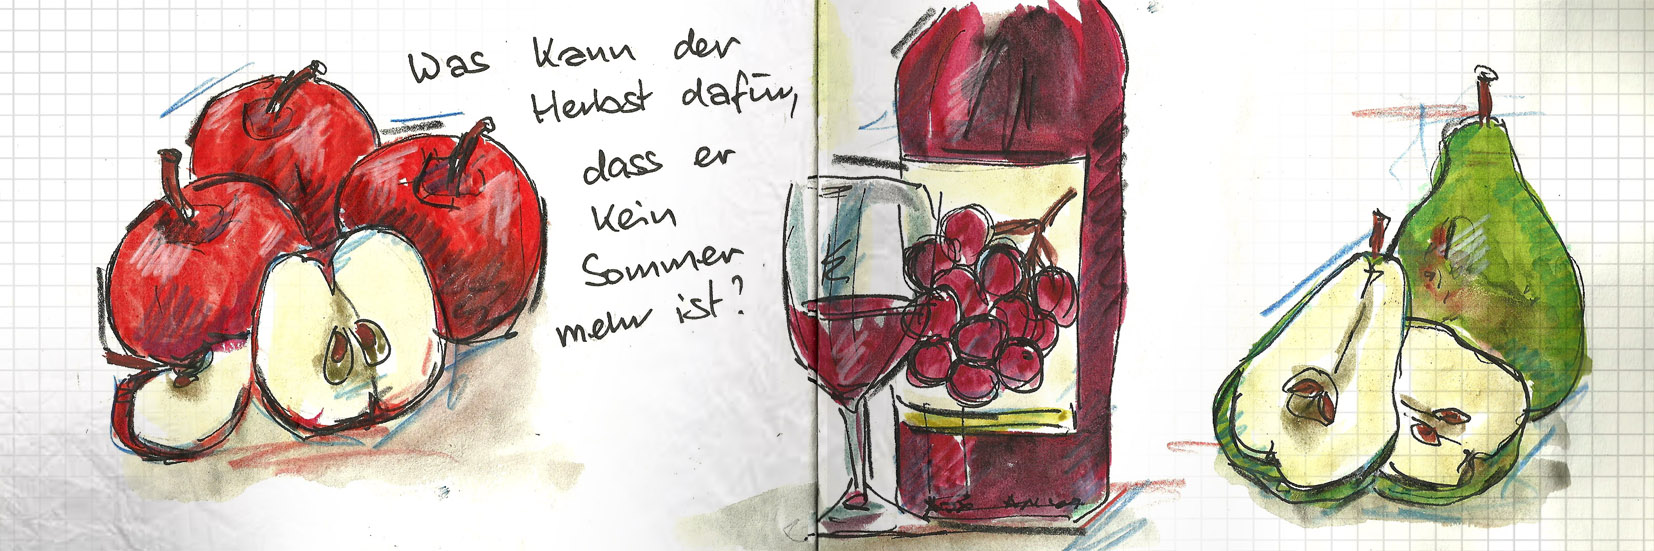 Was kann der
Herbst dafür,
dass er
kein
Sommer
mehr ist?